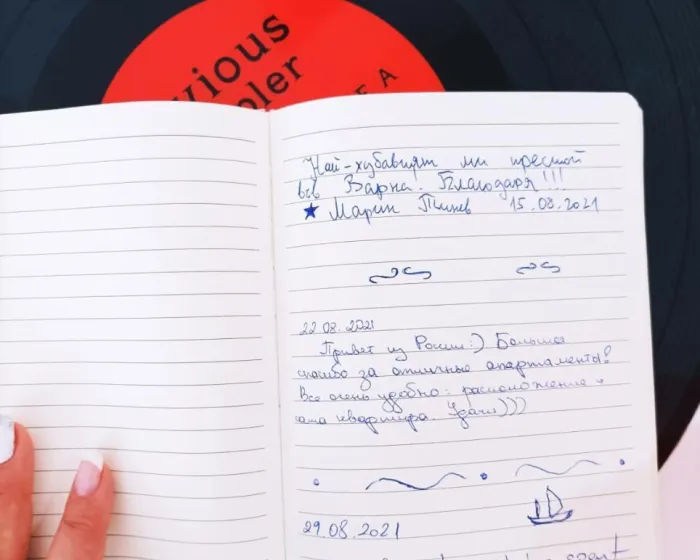 vious
pler
F A
Най-хубавият ми престой
във Варна. Благодаря!!!
★ Марин Пинев 15.08.2021
22.08.2021
Привет из России:) Большое
спасибо за отличные апартаменты!
Все очень удобно: расположение и
сама квартира. Удачи)))
29.08.2021
spent